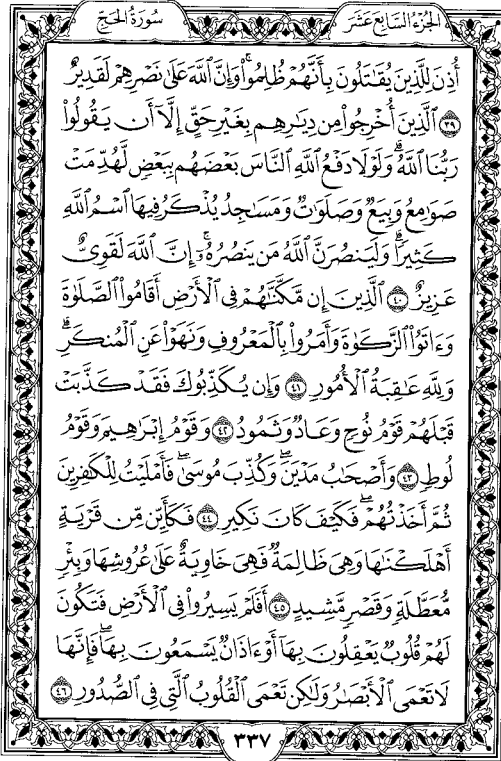 الجزء السابع عشر
سورة الحج
أُذِنَ لِلَّذِينَ يُقَٰتَلُونَ بِأَنَّهُمْ ظُلِمُواْۚ وَإِنَّ ٱللَّهَ عَلَىٰ نَصْرِهِمْ لَقَدِيرٌ
٣٩ ٱلَّذِينَ أُخْرِجُواْ مِن دِيَٰرِهِم بِغَيْرِ حَقٍّ إِلَّآ أَن يَقُولُواْ
رَبُّنَا ٱللَّهُۗ وَلَوْلَا دَفْعُ ٱللَّهِ ٱلنَّاسَ بَعْضَهُم بِبَعْضٍ لَّهُدِّمَتْ
صَوَٰمِعُ وَبِيَعٌ وَصَلَوَٰتٌ وَمَسَٰجِدُ يُذْكَرُ فِيهَا ٱسْمُ ٱللَّهِ
كَثِيرًاۗ وَلَيَنصُرَنَّ ٱللَّهُ مَن يَنصُرُهُۥٓۚ إِنَّ ٱللَّهَ لَقَوِىٌّ
عَزِيزٌ ٤٠ ٱلَّذِينَ إِن مَّكَّنَّٰهُمْ فِى ٱلْأَرْضِ أَقَامُواْ ٱلصَّلَوٰةَ
وَءَاتَوُاْ ٱلزَّكَوٰةَ وَأَمَرُواْ بِٱلْمَعْرُوفِ وَنَهَوْاْ عَنِ ٱلْمُنكَرِۗ
وَلِلَّهِ عَٰقِبَةُ ٱلْأُمُورِ ٤١ وَإِن يُكَذِّبُوكَ فَقَدْ كَذَّبَتْ
قَبْلَهُمْ قَوْمُ نُوحٍ وَعَادٌ وَثَمُودُ ٤٢ وَقَوْمُ إِبْرَٰهِيمَ وَقَوْمُ
لُوطٍ ٤٣ وَأَصْحَٰبُ مَدْيَنَۖ وَكُذِّبَ مُوسَىٰۖ فَأَمْلَيْتُ لِلْكَٰفِرِينَ
ثُمَّ أَخَذْتُهُمْۖ فَكَيْفَ كَانَ نَكِيرِ ٤٤ فَكَأَيِّن مِّن قَرْيَةٍ
أَهْلَكْنَٰهَا وَهِىَ ظَالِمَةٌ فَهِىَ خَاوِيَةٌ عَلَىٰ عُرُوشِهَا وَبِئْرٍ
مُّعَطَّلَةٍ وَقَصْرٍ مَّشِيدٍ ٤٥ أَفَلَمْ يَسِيرُواْ فِى ٱلْأَرْضِ فَتَكُونَ
لَهُمْ قُلُوبٌ يَعْقِلُونَ بِهَآ أَوْ ءَاذَانٌ يَسْمَعُونَ بِهَاۖ فَإِنَّهَا
لَا تَعْمَى ٱلْأَبْصَٰرُ وَلَٰكِن تَعْمَى ٱلْقُلُوبُ ٱلَّتِى فِى ٱلصُّدُورِ ٤٦
٣٣٧